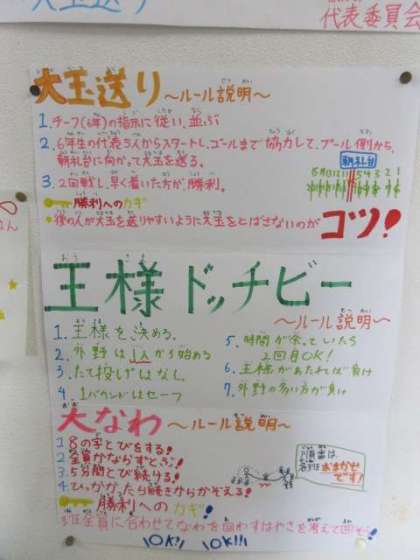 大玉送り
代表委員会
大玉送り 〜ルール説明〜
1.チーフ(6年)の指示に従い、並ぶ
2.6年生の代表ラインからスタートし、ゴールまで協力して、プール側から、
朝礼台に向かって大玉を送る。
朝礼台
3.2回戦し、早く着いた方が勝利。
勝利へのカギ
後の人が大玉を送りやすいように大玉をとばさないのが
コツ!
王様ドッチビー
〜ルール説明〜
1.王様を決める。
2.外野は1人から始める
3.たて投げはなし
4.1バウンドはセーフ
5.時間が余っていたら
2回目OK!
6.王様があたれば負け
7.外野の多い方が負け
大なわ 〜ルール説明〜
1.8の字とびをする!
2.全員かならずとぶ!
3.5分間とび続ける!
4.ひっかかったら続きからかぞえる!
順番は、
各班おまかせ
です!
勝利へのカギ!
班全員に合わせてなわを回すはやさを考えて回そう!